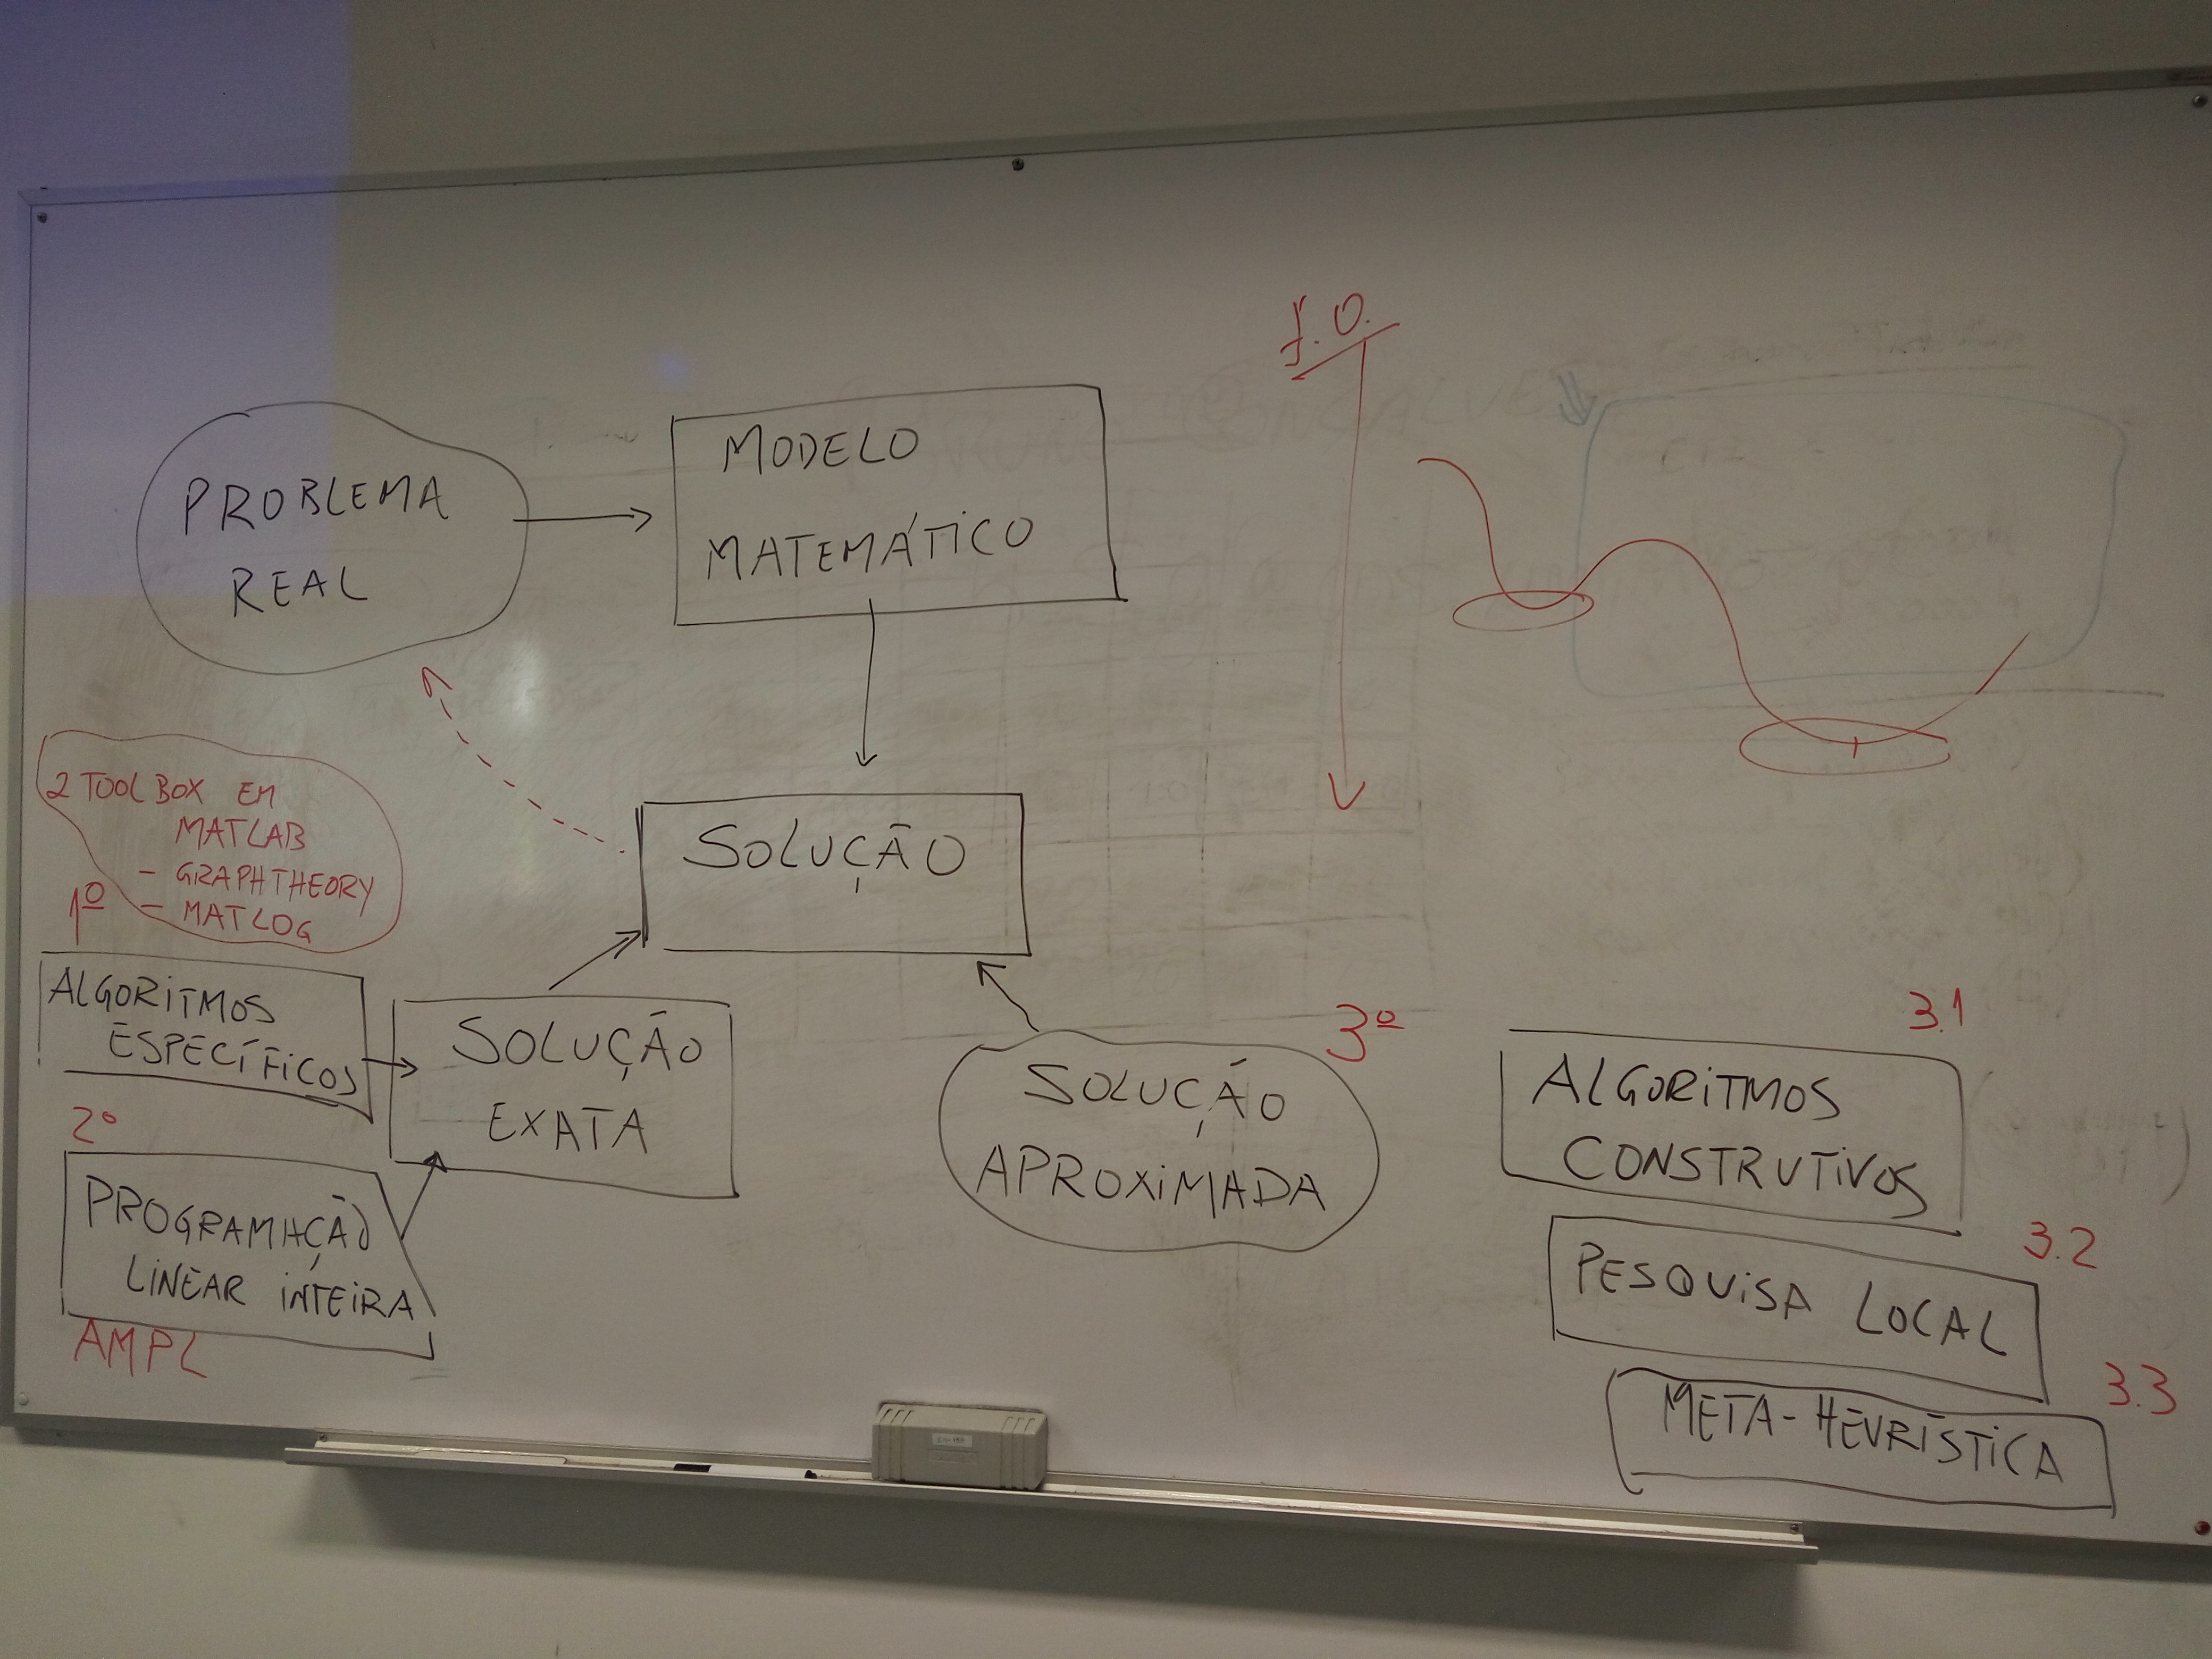 PROBLEMA
REAL
MODELO
MATEMÁTICO
f.O.
SOLUÇÃO
2 TOOLBOX EM
MATLAB
- GRAPHTHEORY
- MATLOG
1º
ALGORITMOS
ESPECÍFICOS
SOLUÇÃO
EXATA
2º
PROGRAMAÇÃO
LINEAR INTEIRA
AMPL
3º
SOLUÇÃO
APROXIMADA
3.1
ALGORITMOS
CONSTRUTIVOS
3.2
PESQUISA LOCAL
3.3
META-HEURÍSTICA